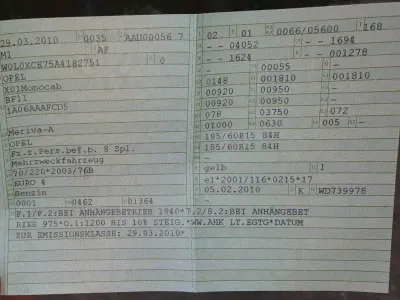 29.03.2010 0035 AAU00056 7
M1 AF
W0L0XCE75A4182751 0
OPEL
X01Monocab
BF11
1A06AAAFCD5
Meriva-A
OPEL
Fz.z.Pers.bef.b. 8 Spl.
Mehrzweckfahrzeug
70/220*2003/76B
EURO 4
Benzin
0001 0462 01364
02 01 0066/05600 168
- - 04052 - - 1694
- - 1624 - - 001278
- - 00055 - -
0148 001810 001810
00920 00950 - -
00920 00950 - -
078 03750 072
01000 0630 005 - -
185/60R15 84H
185/60R15 84H
- -
gelb 1
e1*2001/116*0215*17
05.02.2010 K WD739978
F.1/F.2:BEI ANHÄNGEBETRIEB 1840*7.2/8.2:BEI ANHÄNGEBET
RIEB 975*O.1:1200 BIS 10% STEIG.*WW.AHK LT.EGTG*DATUM
ZUR EMISSIONSKLASSE: 29.03.2010*